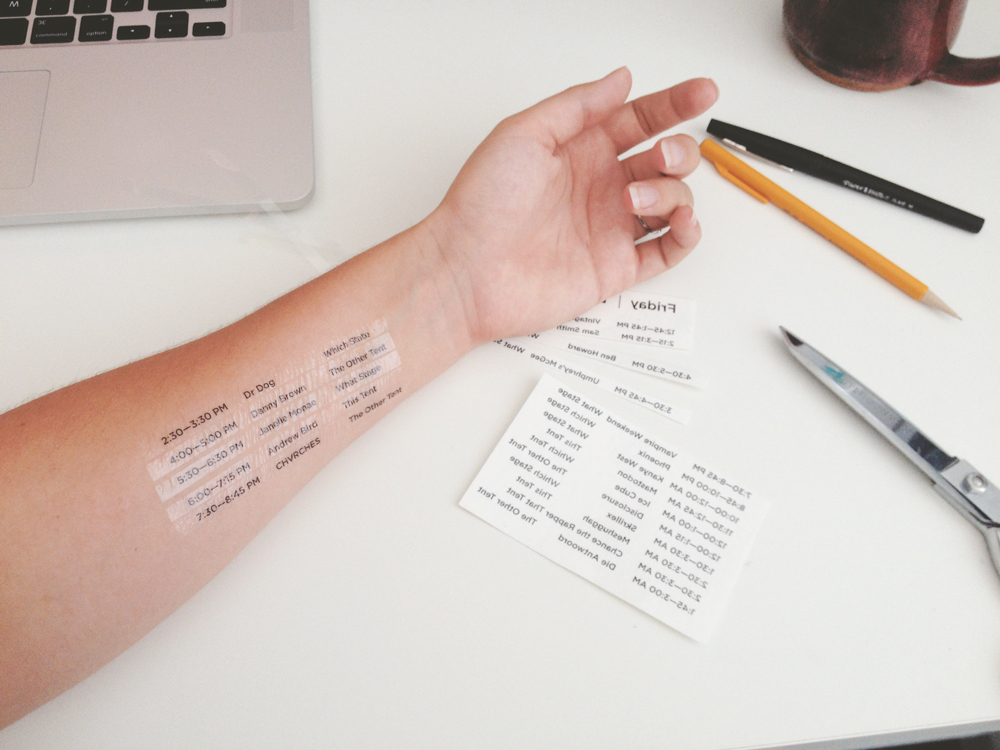 command
option
2:30–3:30 PM Dr Dog Which Stage
4:00–5:00 PM Danny Brown The Other Tent
5:30–6:30 PM Janelle Monae What Stage
6:00–7:15 PM Andrew Bird This Tent
7:30–8:45 PM CHVRCHES The Other Tent
Friday |
12:45–1:45 PM
2:15–3:15 PM Sam Smith
4:30–5:30 PM Ben Howard
3:30–4:45 PM Umphrey's McGee What
7:30–8:45 PM Vampire Weekend What Stage
8:45–10:00 PM Phoenix Which Stage
10:00–12:00 AM Kanye West What Stage
11:30–12:45 AM Mastodon This Tent
12:00–1:00 AM Ice Cube Which Tent
12:00–1:15 AM Disclosure The Other Tent
Skrillex Which Stage
Meshuggah This Tent
Chance the Rapper That Tent
1:45–3:00 AM Die Antwoord The Other Tent